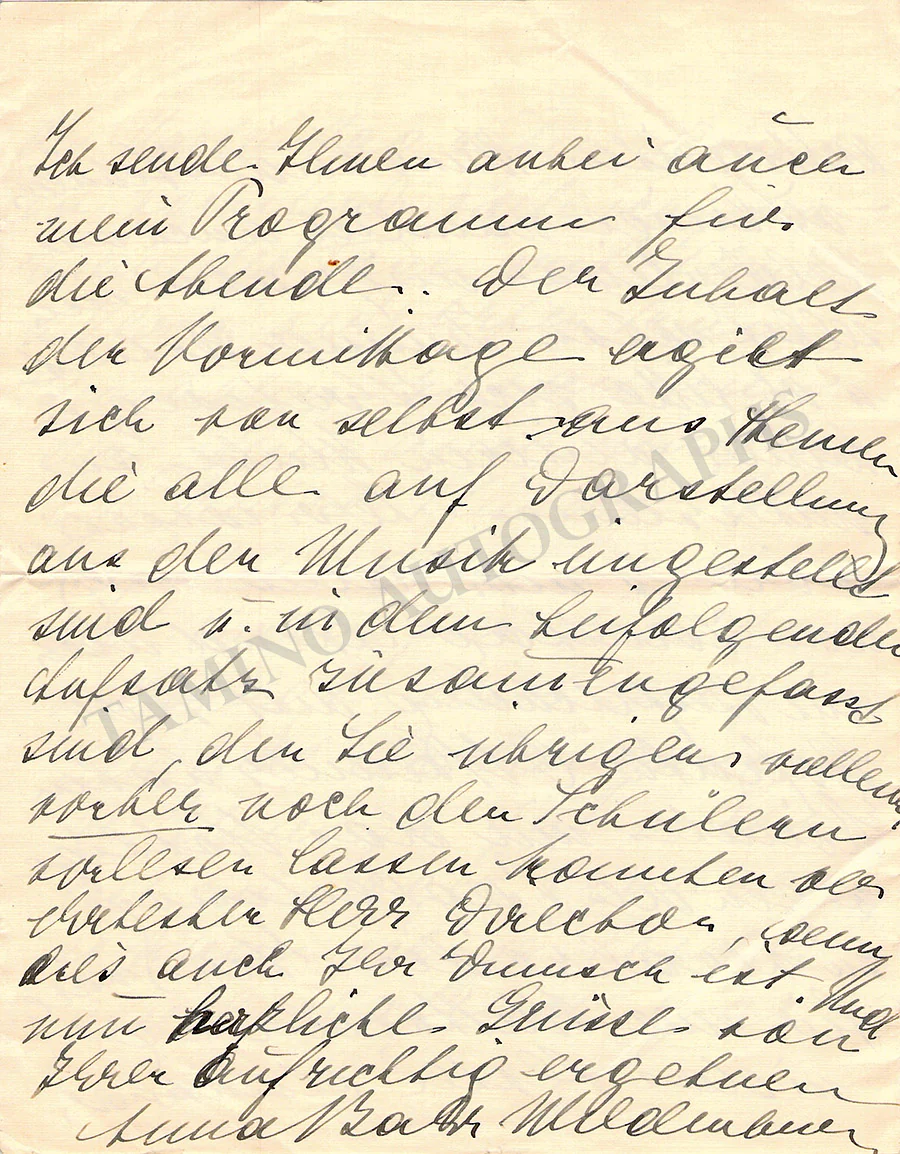 Ich sende Ihnen anbei auch
mein Programm für
die Abende. Der Inhalt
der Vormittage ergibt
sich von selbst aus Themen
die alle auf Darstellung
aus der Musik eingestellt
sind u. in dem beifolgenden
Aufsatz zusam̄engefasst
sind, den Sie übrigens
vorher noch den Schülern
vorlesen lassen könnten ver
ehrtester Herr Director, wenn
dies auch Ihr Wunsch ist. Und
nun herzliche Grüsse von
Ihrer aufrichtig ergebenen
Anna Bahr Mildenburg
TAMINO AUTOGRAPHS